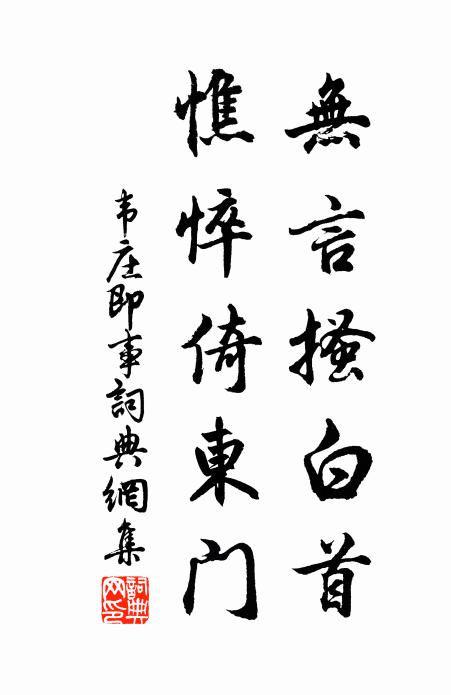 無言搔白首
憔悴倚東门
韦庄即事詞典網集
詞典网印